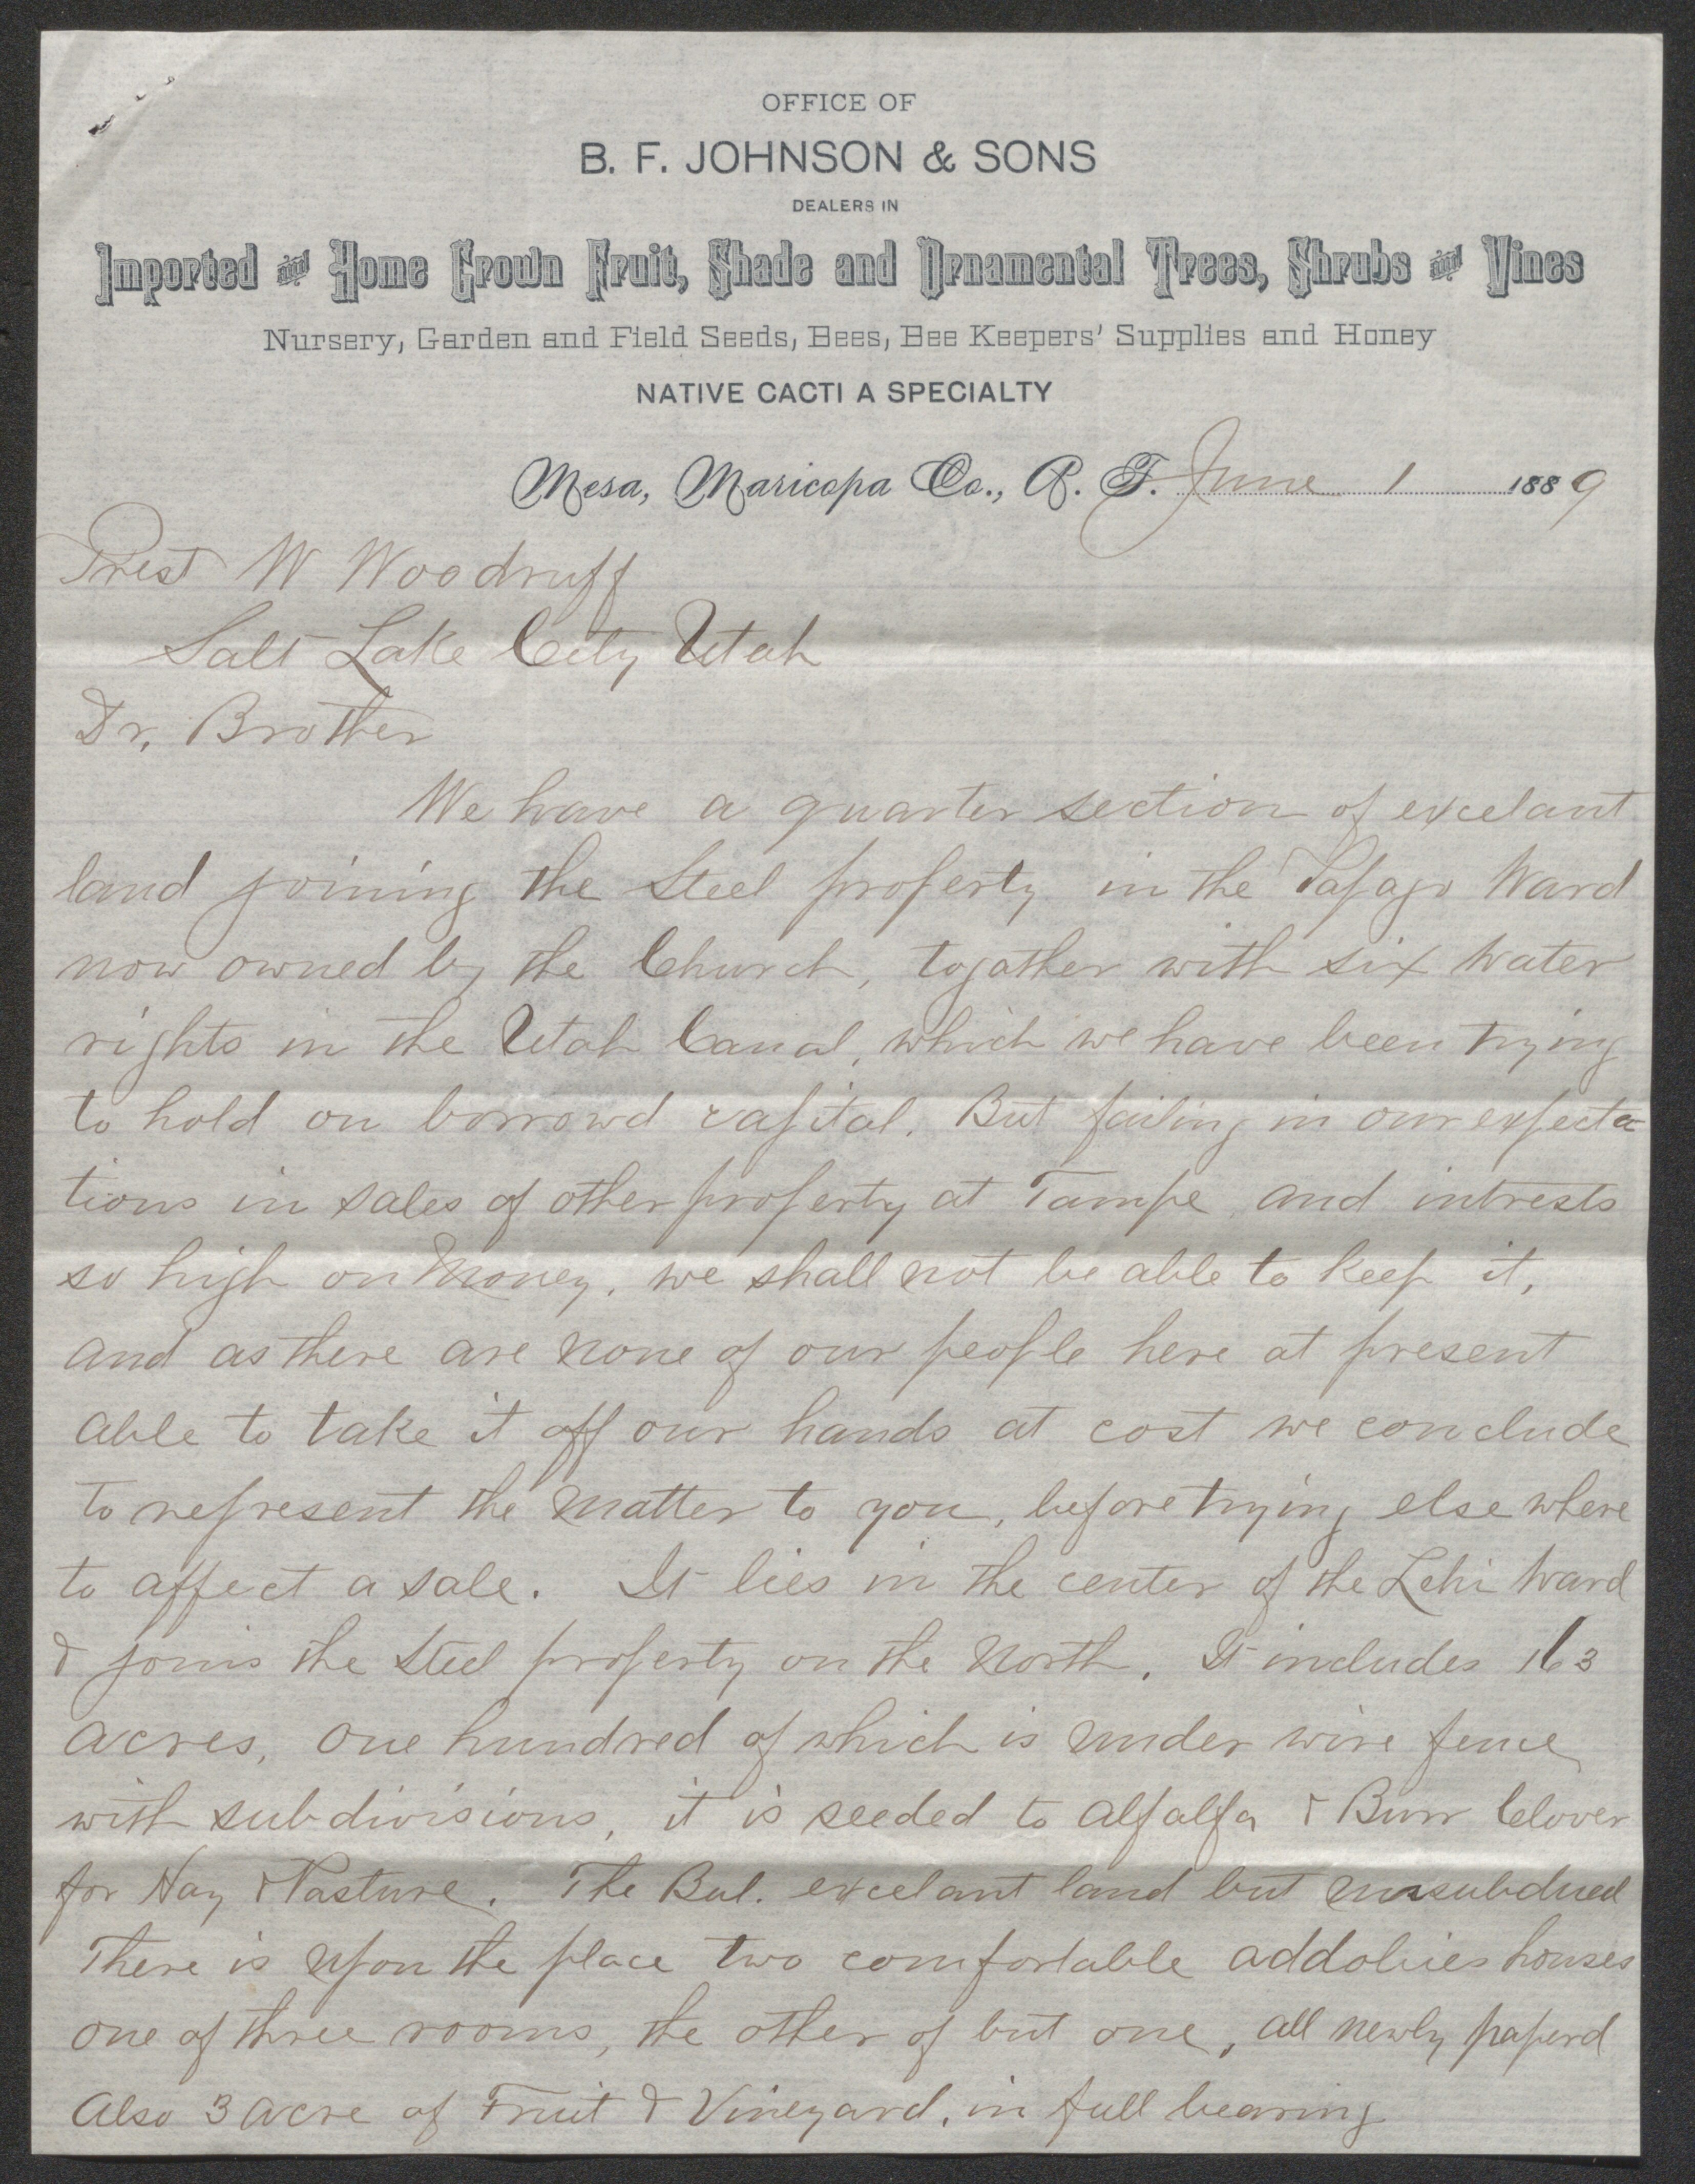 OFFICE OF
B. F. JOHNSON & SONS
DEALERS IN
Imported and Home Grown Fruit, Shade and Ornamental Trees, Shrubs and Vines
Nursery, Garden and Field Seeds, Bees, Bee Keepers' Supplies and Honey
NATIVE CACTI A SPECIALTY
Mesa, Maricopa Co., A. T. June 1 1889
Prest W Woodruff
Salt Lake City Utah
Dr. Brother
We have a quarter section of excelant
land joining the Steel property in the Papago Ward
now owned by the Church, togather with six water
rights in the Utah Canal, which we have been trying
to hold on borrowd capital. But failing in our expecta
tions in sales of other property at Tampe, and intrests
so high on Money, we shall not be able to keep it,
and as there are none of our people here at present
able to take it off our hands at cost we conclude
to represent the matter to you, before trying else where
to affect a sale. It lies in the center of the Lehi Ward
& joins the Steel property on the North. It includes 163
acres, one hundred of which is under wire fence
with subdivisions, it is seeded to alfalfa & Burr Clover
for Hay & Pasture. The Bal. excelant land but unsubdued
There is upon the place two comfortable addobies houses
one of three rooms, the other of but one, all newly paperd
Also 3 acre of Fruit & Vineyard, in full bearing